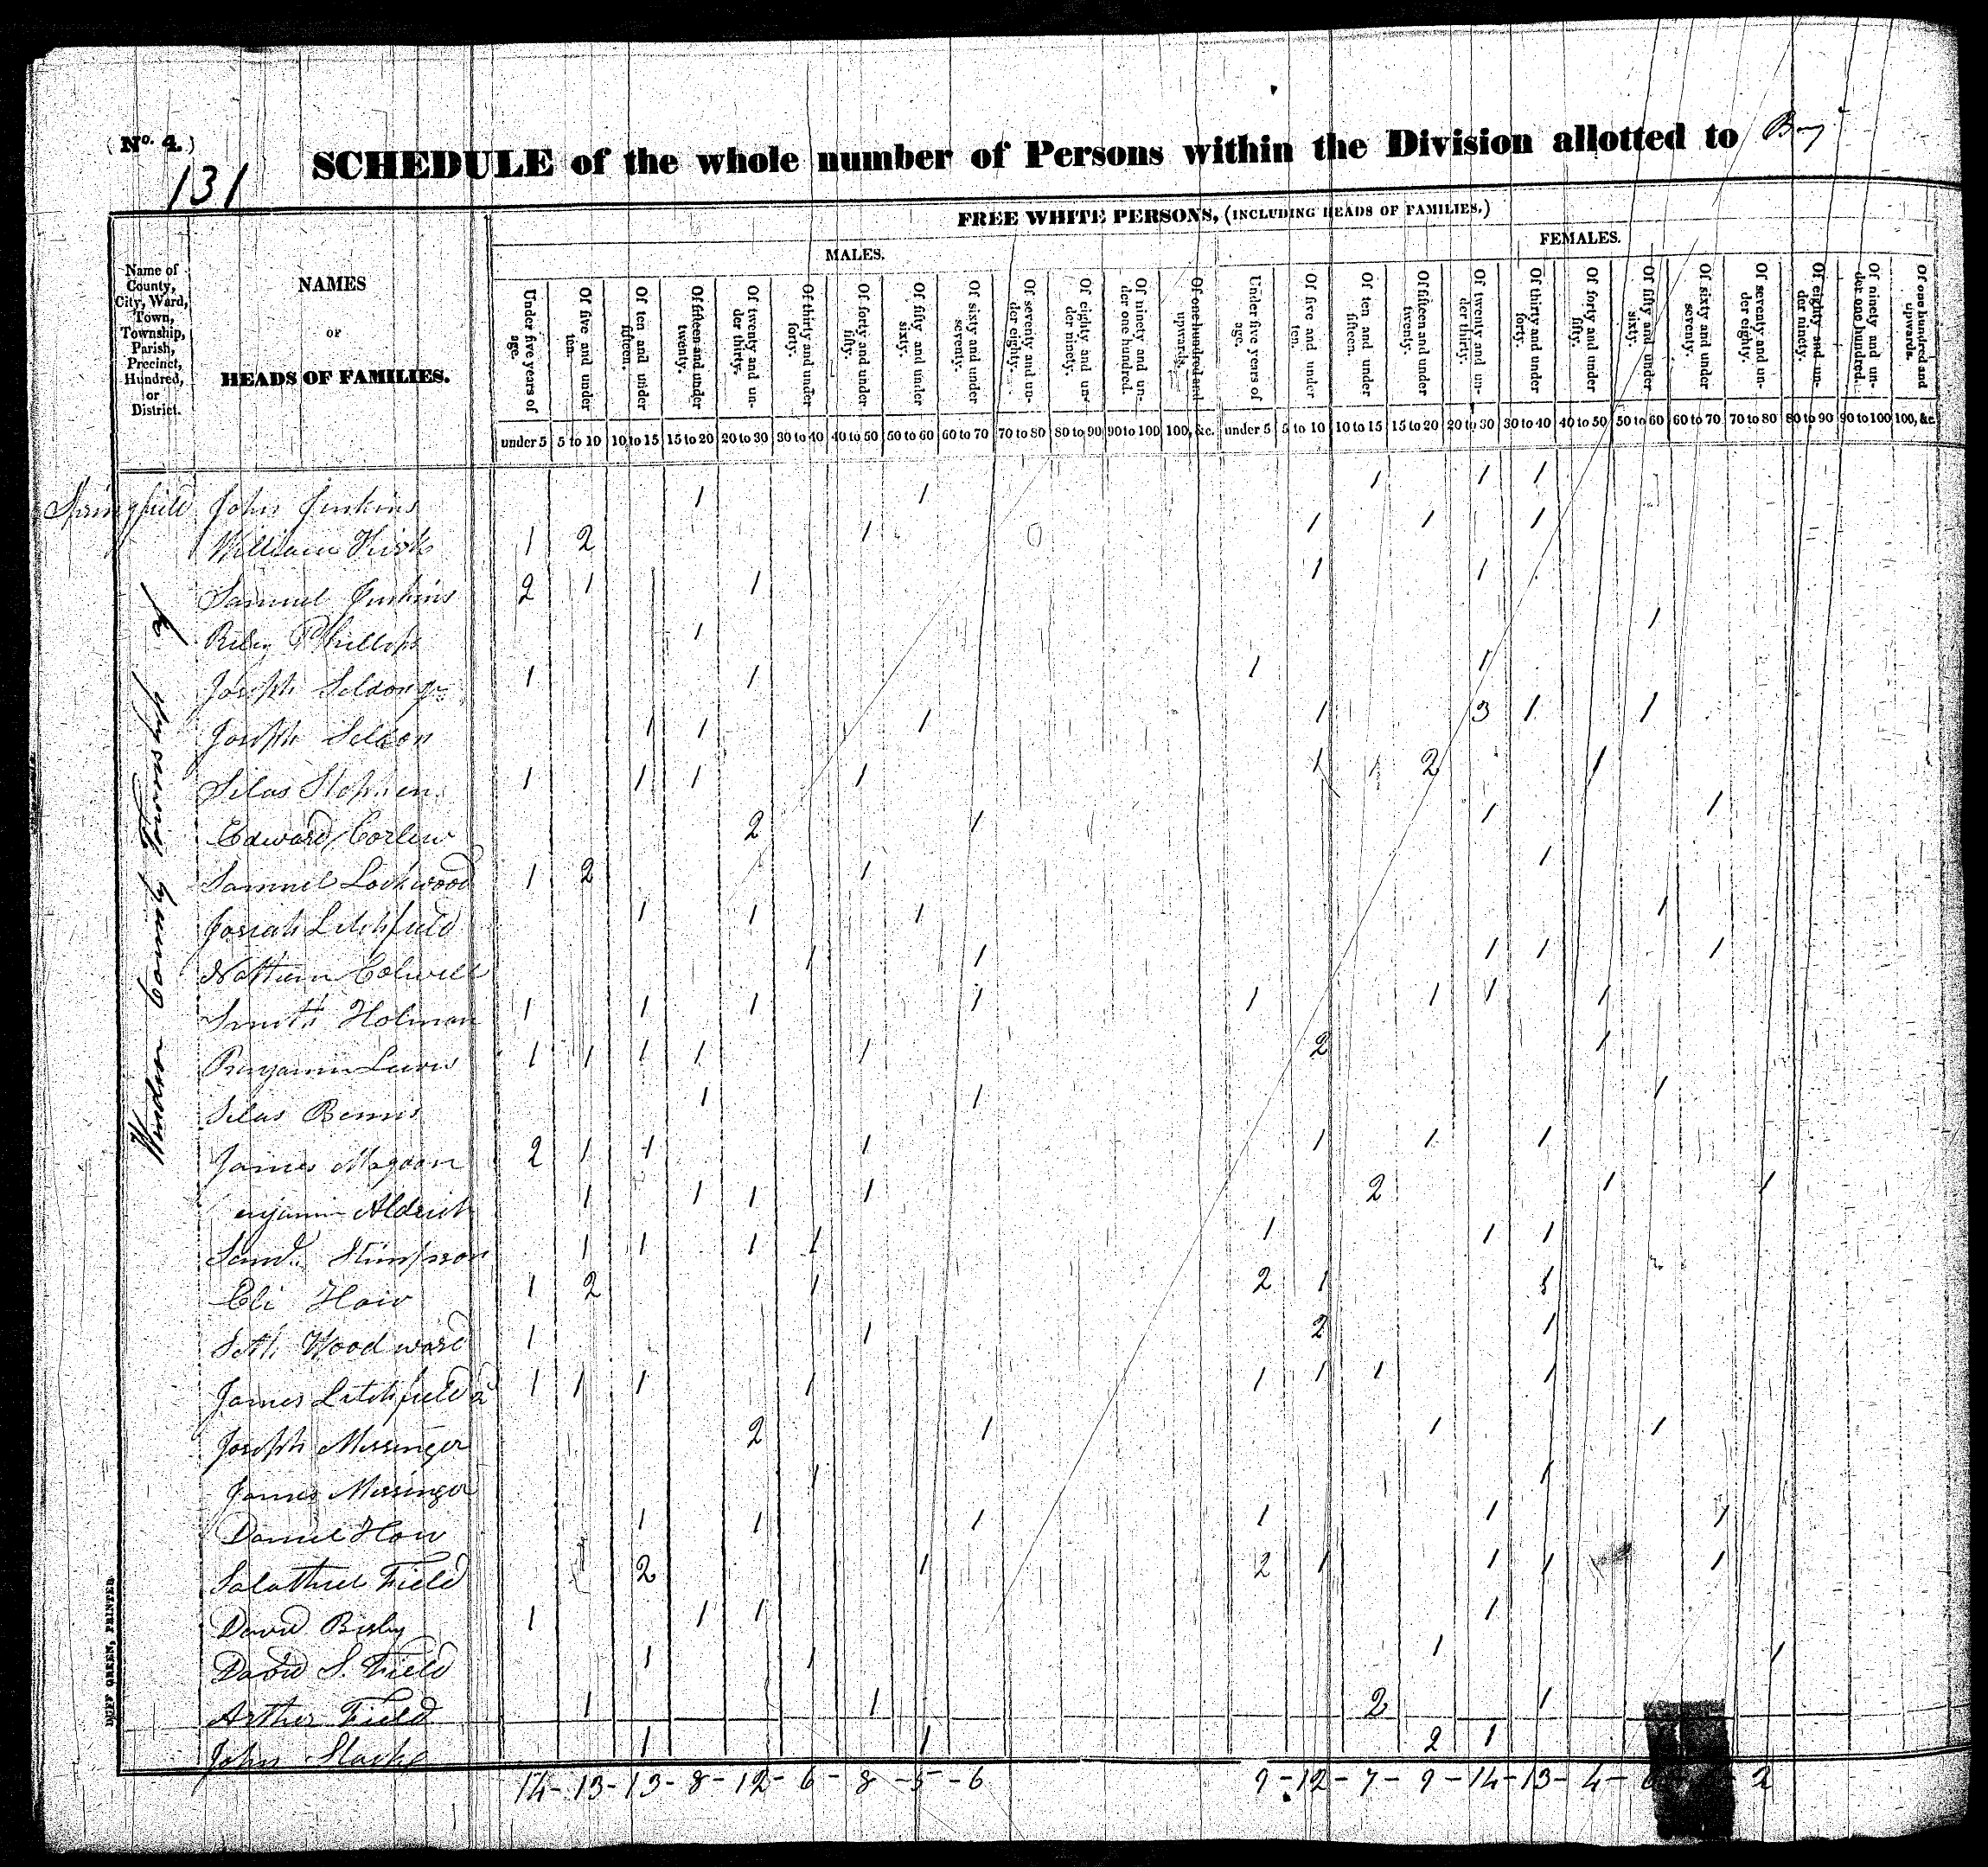 (No. 4.)
131
SCHEDULE of the whole number of Persons within the Division allotted to
FREE WHITE PERSONS, (INCLUDING HEADS OF FAMILIES.)
MALES. FEMALES.
Name of County, City, Ward, Town, Township, Parish, Precinct, Hundred, or District.
NAMES OF HEADS OF FAMILIES.
Under five years of age. Of five and under ten. Of ten and under fifteen. Of fifteen and under twenty. Of twenty and under thirty. Of thirty and under forty. Of forty and under fifty. Of fifty and under sixty. Of sixty and under seventy. Of seventy and under eighty. Of eighty and under ninety. Of ninety and under one hundred. Of one hundred and upwards. Under five years of age. Of five and under ten. Of ten and under fifteen. Of fifteen and under twenty. Of twenty and under thirty. Of thirty and under forty. Of forty and under fifty. Of fifty and under sixty. Of sixty and under seventy. Of seventy and under eighty. Of eighty and under ninety. Of ninety and under one hundred. Of one hundred and upwards.
under 5 5 to 10 10 to 15 15 to 20 20 to 30 30 to 40 40 to 50 50 to 60 60 to 70 70 to 80 80 to 90 90 to 100 100, &c. under 5 5 to 10 10 to 15 15 to 20 20 to 30 30 to 40 40 to 50 50 to 60 60 to 70 70 to 80 80 to 90 90 to 100 100, &c.
Springfield John Jenkins 1 1 1 1 1
William Kirk 1 2 1 1 1 1
Samuel Jenkins 2 1 1 1 1
Riley Phillips 1 1
Joseph Seldon Jr. 1 1 1 1
Joseph Seldon 1 1 1 1 3 1 1
Silas Stephen 1 1 1 1 1 1 2 1
Edward Corlew 2 1 1 1
Samuel Lockwood 1 2 1 1
Josiah Litchfield 1 1 1 1
Colwell 1 1 1 1 1
Smith Holman 1 1 1 1 1 1 1 1
Benjamin Lewis 1 1 1 1 1 2 1
Silas Bemis 1 1 1
James Magoon 2 1 1 1 1 1 1
enjamin Aldrich 1 1 1 1 2 1 1
Saml. Stimpson 1 1 1 1 1 1 1
Eli How 1 2 1 2 1 1
Seth Woodward 1 1 2 1
James Litchfield 2d 1 1 1 1 1 1 1 1
Joseph Messinger 2 1 1 1
James Messinger 1 1
Daniel How 1 1 1 1 1 1
Salathiel Field 2 1 2 1 1 1 1
David Bixby 1 1 1 1
David S. Field 1 1 1 1
Arther Field 1 1 2 1
John 1 1 2 1
14 - 13 - 13 - 8 - 12 - 6 - 8 - 5 - 6 9 - 12 - 7 - 9 - 14 - 13 - 4 - 6 2
DUFF GREEN, PRINTER